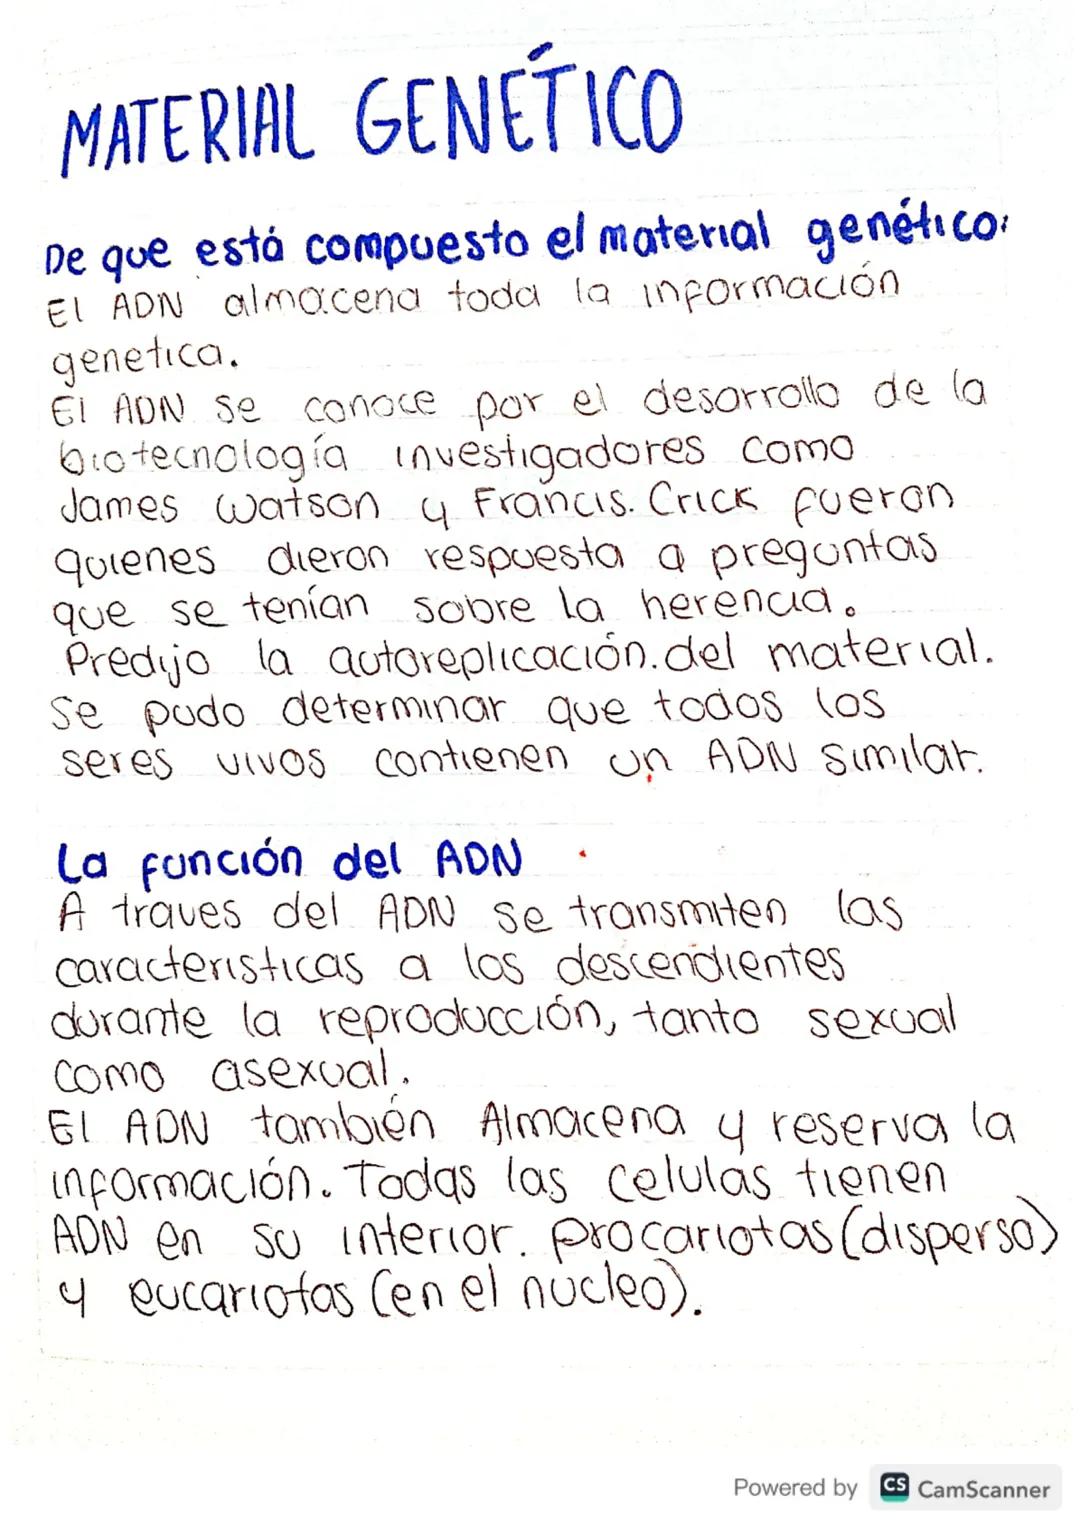 MATERIAL GENÉTICO
De que está compuesto el material genético:
El ADN almacena toda la información
genetica.
El ADN se conoce por el desarrollo de la
biotecnología investigadores como
James Watson y Francis. Crick fueron
quienes dieron respuesta a preguntas
que se tenían sobre la herencia.
Predijo la autoreplicación.del material.
Se pudo determinar que todos los
seres vivos contienen un ADN similar.
La función del ADN
A traves del ADN se transmiten las
caracteristicas a los descendientes
durante la reproducción, tanto sexual
como asexual.
El ADN también Almacena y reserva la
información. Todas las celulas tienen
ADN en su interior. procariotas (disperso)
y eucariotas (en el nucleo).
Powered by CS CamScanner